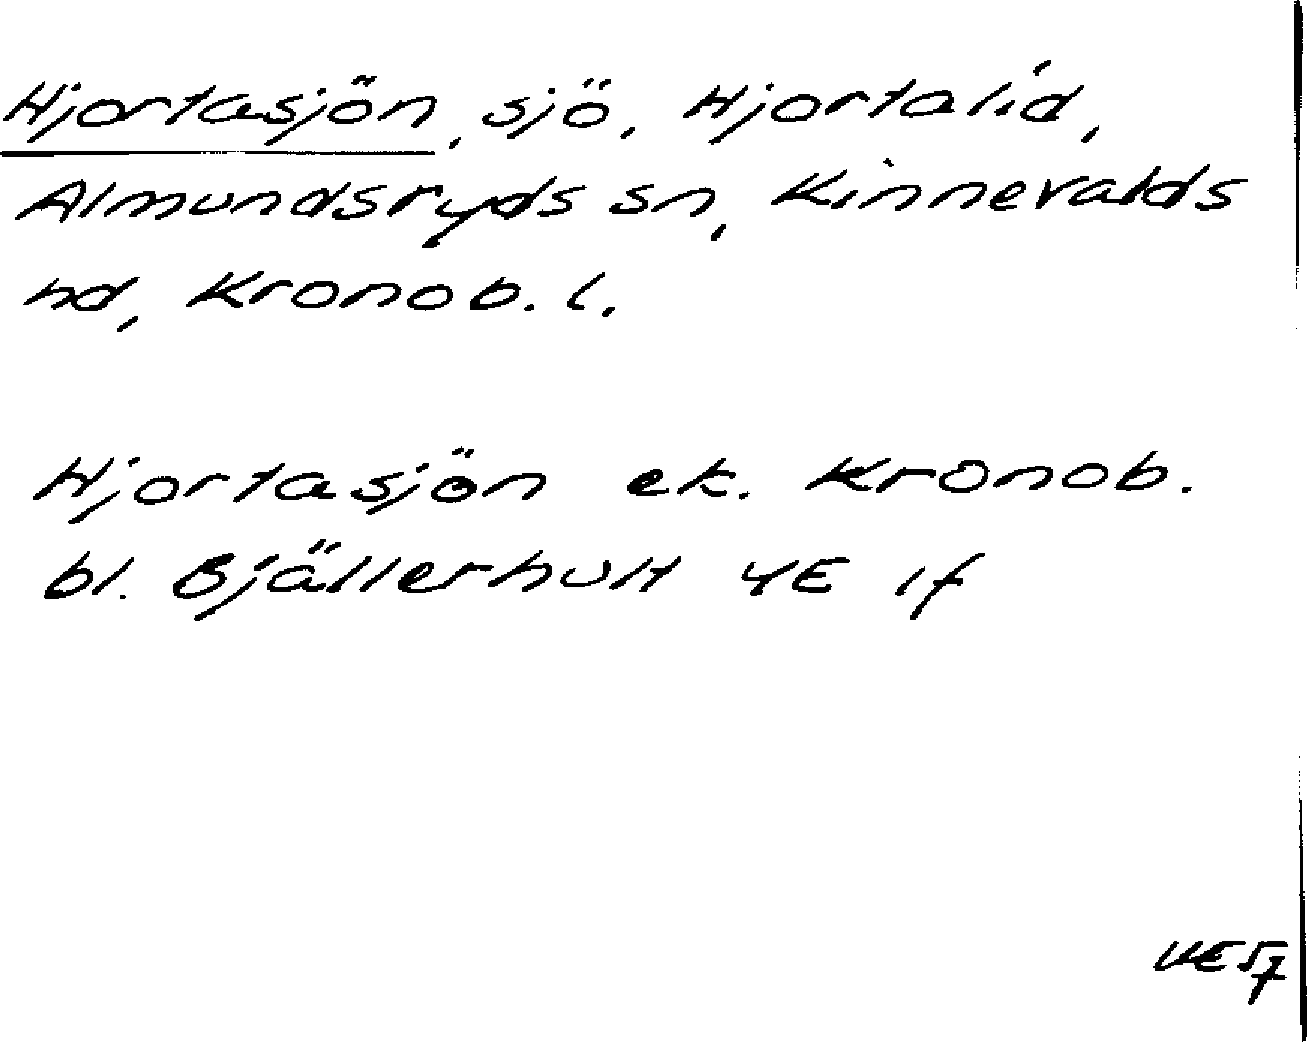 Hjortasjön, sjö. Hjortalid,
Almundsryds sn, Kinnevalds
hd, Kronob. l.
Hjortasjön ek. Kronob.
bl. Bjällerhult 4E 1f
VE57